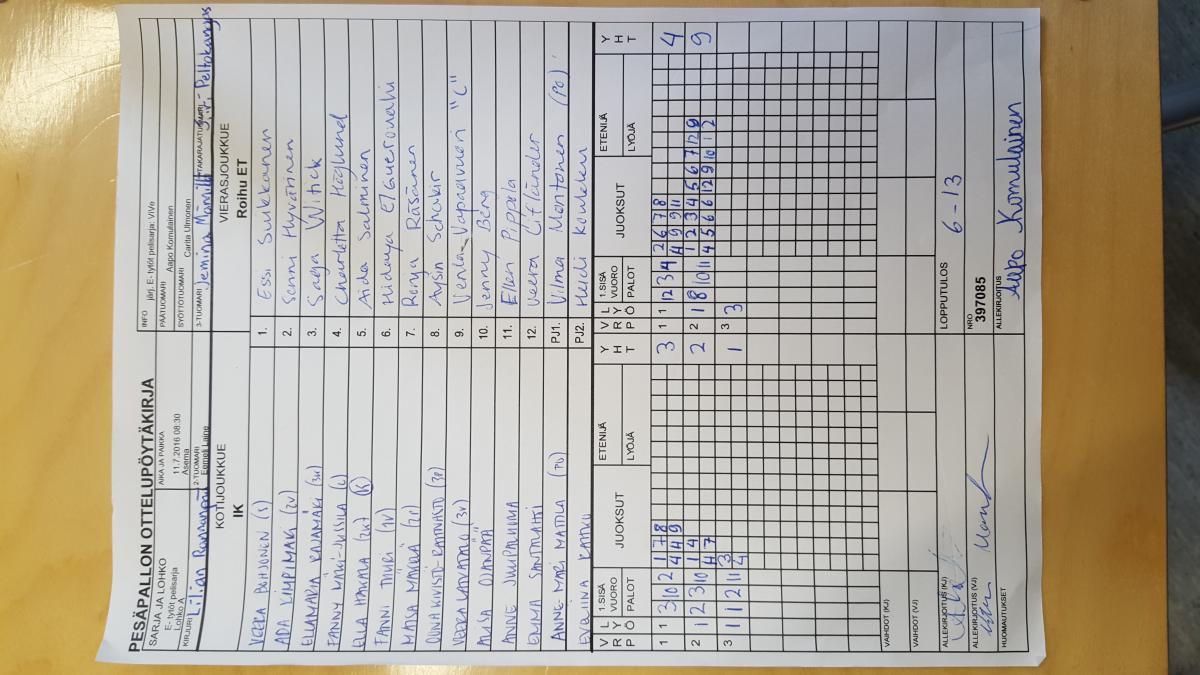 PESÄPALLON OTTELUPÖYTÄKIRJA
SARJA JA LOHKO
E- tytöt pelisarja
Lohko A
AIKA JA PAIKKA
11.7.2016 08:30
Asema
INFO järj. E- tytöt pelisarja: ViVe
PÄÄTUOMARI Aapo Komulainen
SYÖTTÖTUOMARI Carita Ulmonen
KIRJURI Lilian
2-TUOMARI Eemeli Laine
3-TUOMARI Jemina
Peltokangas
KOTIJOUKKUE
IK
VIERASJOUKKUE
Roihu ET
VEERA BOHJONEN (S) 1. Essi Suikkanen
ADA KIMPIMÄKI (2V) 2. Senni Hyvärinen
ELLAMARIA KAJAMÄKI (3K) 3. Saga Witick
FANNY MÄKI-JUSSILA (L) 4. Charlotta Höglund
ELLA HAKALA (2K) (K) 5. Aida Salminen
FANNI TUURI (1V) 6. Hidaya
MAISA MÄKELÄ (2P) 7. Ronya Räsänen
OONA KIVISTÖ-RAHNASTO (3P) 8. Aysin Schakir
VEERA LATVATALO (3V) 9. Venla Vapaavuori "C"
AIJSA OJANPÄÄ 10. Jenny Berg
ANNE JUUPALUOMA 11. Ellen Pippola
EMMA SANTALAHTI 12. Veera Cifländer
ANNE-MARI MATTILA (PJ) PJ1. Vilma Montonen (PJ)
EVELIINA KATKO PJ2. Heidi Koulehu
V R P L Y Ö 1.SISÄ VUORO PALOT JUOKSUT ETENIJÄ LYÖJÄ Y H T V R P L Y Ö 1.SISÄ VUORO PALOT JUOKSUT ETENIJÄ LYÖJÄ Y H T
1 1 3 10 2 1 7 8 3 1 1 12 3 4 2 6 7 8 4
4 4 9 4 9 9 11
2 1 2 3 10 1 4 2 2 1 8 10 11 1 2 3 4 5 6 7 12 9 9
4 7 4 5 6 6 12 9 10 1 2
3 1 1 2 11 3 1 3 3
4
VAIHDOT (KJ)
VAIHDOT (VJ)
ALLEKIRJOITUS (KJ)
LOPPUTULOS 6 - 13
ALLEKIRJOITUS (VJ)
NRO
397085
HUOMAUTUKSET
ALLEKIRJOITUS
Aapo Komulainen